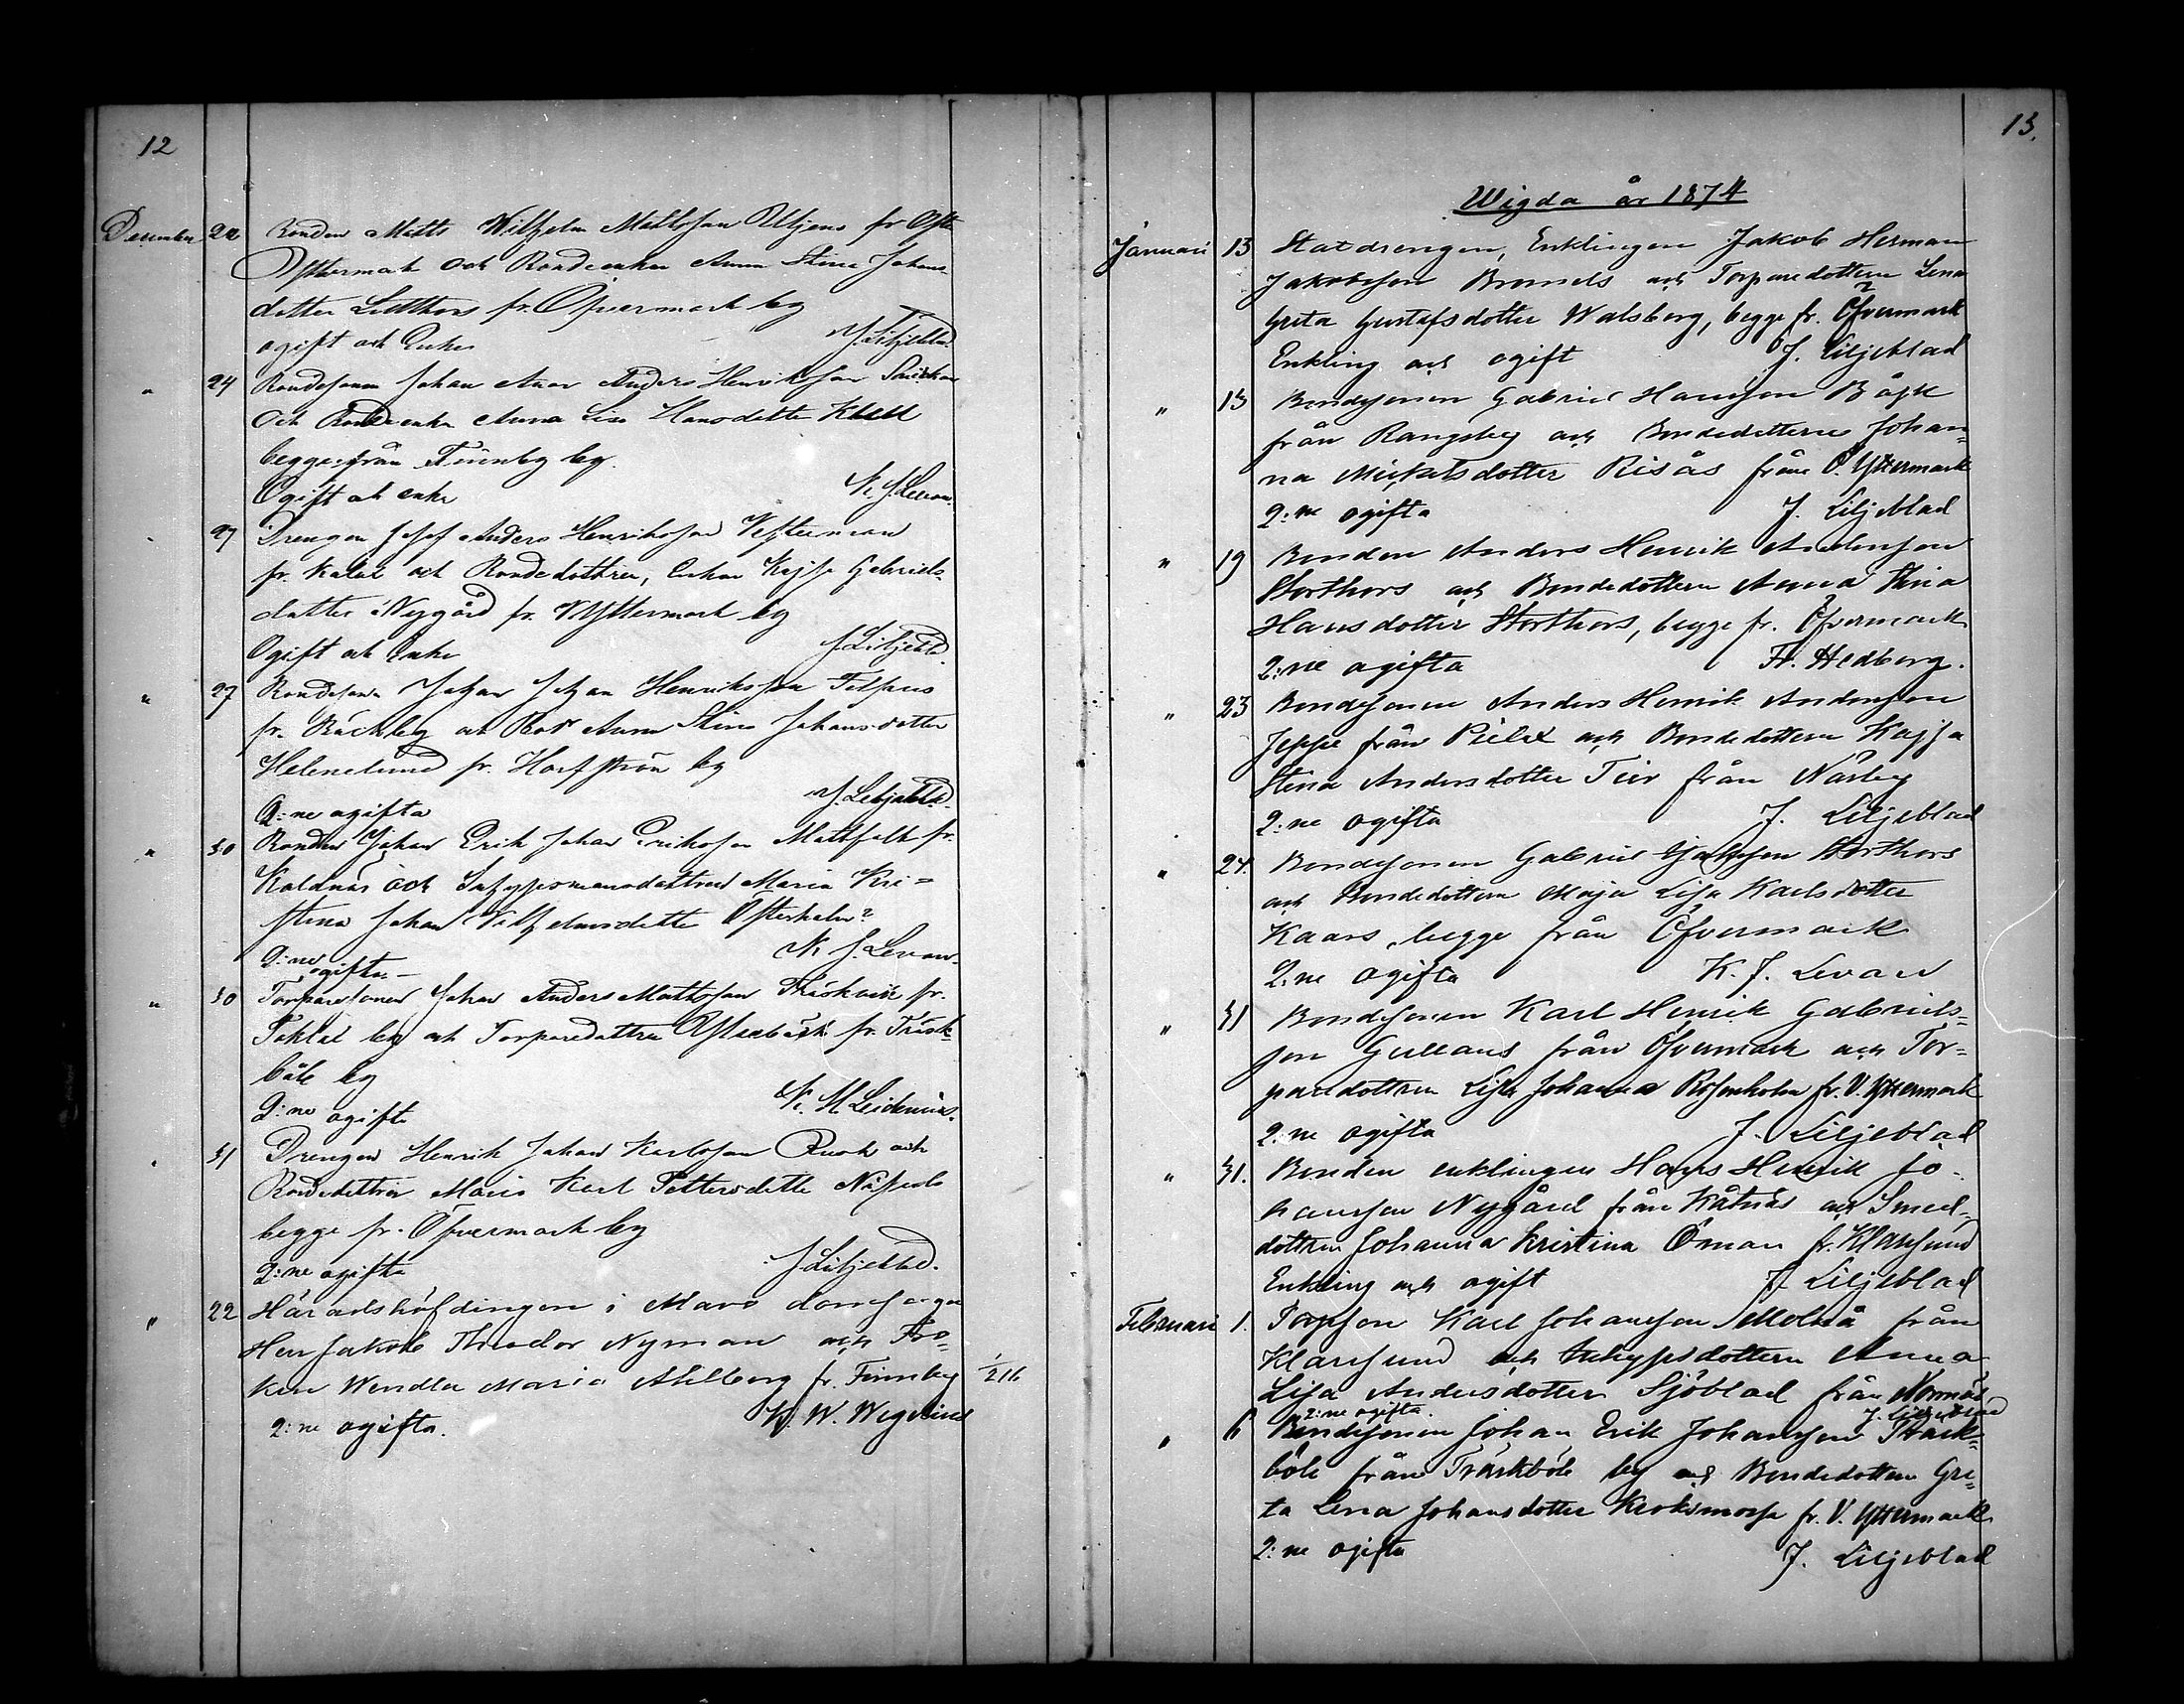 12
December 22 Bonden Matts Wilhelm Mattsson Uttjens fr Öste
Yttermark och Bondeenkan Anna Stina Johans
dotter Lillthors fr. Öfvermark by
ogift och Enka J. Liljeblad
" 24 Bondesonen Johan Anders Henriksson
och Bondeenka Anna Lisa Hansdotter Klell
begge från Finnby by.
Ogift och enka K. J. Levan.
" 27 Drengen Josef Anders Henriksson Vesterman
fr. Kalax och Bondedottren, Enkan Kajsa Gabriels-
dotter Nygård fr. V Yttermark by
Ogift och Enka J. Liljeblad.
" 27 Bondesonen Johan Johan Henriksson Filpus
fr. Bäckby och Anna Stina Johansdotter
Helenelund fr. Harfström by
2:ne ogifta J. Liljeblad.
" 30 Bonden Johan Erik Johan Eriksson Mattfolk fr.
Kaldnäs och Inhysesmansdottren Maria Kri=
stina Johan Vilhelmsdotter Österholm?
2:ne ogifta.- K. J. Levan.
" 30 Torparesonen Johan Anders Mattsson Träskvik fr.
Taklax by och Torparedottren fr. Träsk-
böle by
2:ne ogifta K. M. Leidenius.
" 31 Drengen Henrik Johan Karlsson Rusk och
Bondedottren Maria Karl Pettersdotter Näsguls
begge fr. Öfvermark by
2:ne ogifta J. Liljeblad.
" 22 Häradshöfdingen i domsaga
Herr Jakob Theodor Nyman och Frö-
ken Wendla Maria Ahlberg fr. Finnby 1/216
2:ne ogifta. K. W. Wegelius
13.
Wigda år 1874
Januari 13 Statdrengen, Enklingen Jakob Herman
Jakobsson Bromels och Torparedottern Lena
Greta Gustafsdotter Walsberg, begge fr. Öfvermark
Enkling och ogift J. Liljeblad
" 13 Bondesonen Gabriel Hansson Bågk
från Rangsby och Bondedottern Johan=
na Mickelsdotter Risås från Ö. Yttermark
2:ne ogifta J. Liljeblad
" 19 Bonden Anders Henrik Andersson
Storthors och Bondedottern Anna Stina
Hansdotter Storthors, begge fr. Öfvermark
2:ne ogifta Fr. Hedberg.
" 23 Bondesonen Anders Henrik Andersson
Jeppe från Pielax och Bondedottern Kajsa
Stina Andersdotter Teir från Nårby
2:ne ogifta J. Liljeblad
" 24. Bondesonen Gabriel Storthors
och Bondedottern Maja Lisa Karlsdotter
Kaars, begge från Öfvermark
2:ne ogifta K. J. Levan
" 31 Bondesonen Karl Henrik Gabriels=
son Gullans från Öfvermark och Tor=
paredottren Lisa Johanna Rosenholm fr. V. Yttermark
2:ne ogifta J. Liljeblad
" 31. Bonden enklingen Hans Henrik Jo-
hansson Nygård från Kåtnäs och Smed-
dottren Johanna Kristina Öman fr. Klåresund
Enkling och ogift J. Liljeblad
Februari 1. Torpson Karl Johansson Molnå från
Klåresund och Inhysesdottern Anna
Lisa Andersdotter Sjöblad från Norrnäs
2:ne ogifta. J. Liljeblad
" 6 Bondesonen Johan Erik Johansson Träsk=
böle från Träskböle by och Bondedottern Gre=
ta Lena Johansdotter Kroksmossa fr. V. Yttermark
2:ne ogifta J. Liljeblad